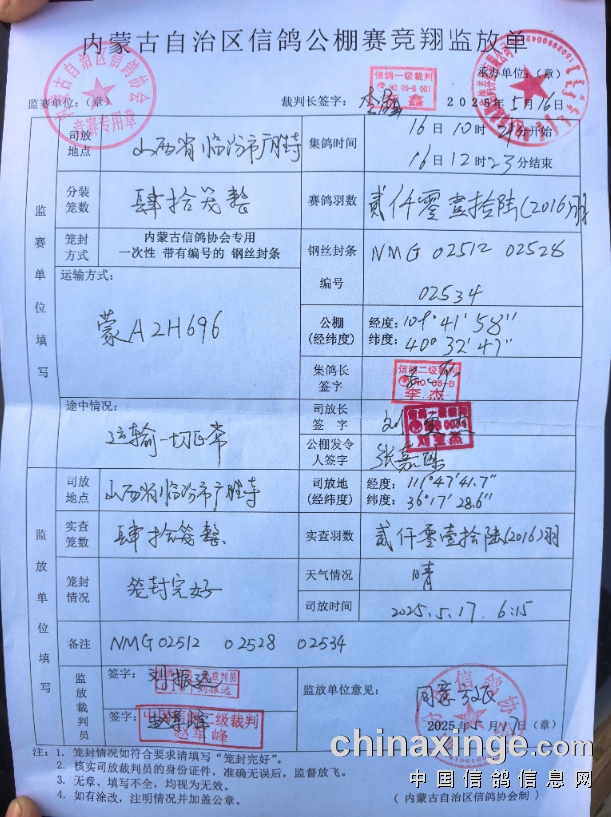 内蒙古自治区信鸽公棚赛竞翔监放单
监赛单位:(章)
裁判长签字:
承办单位:(章)
2025年5月16日
内蒙古自治区信鸽协会
竞赛专用章
信鸽一级裁判
NO.05-B 007
司放地点
山西省临汾市广胜寺
集鸽时间
16日10时21分开始
16日12时23分结束
分装笼数
肆拾笼整
赛鸽羽数
贰仟零壹拾陆(2016)羽
监赛单位填写
笼封方式
内蒙古信鸽协会专用
一次性 带有编号的 钢丝封条
钢丝封条
编号
NMG 02512 02528
02534
运输方式:
蒙A2H696
公棚(经纬度)
经度:109°41′58″
纬度:40°32′47″
集鸽长签字
信鸽二级裁判
NO.05-B
李杰
途中情况:
运输一切正常
司放长签字
公棚发令人签字
司放地点
山西省临汾市广胜寺
司放地(经纬度)
经度:111°47′41.7″
纬度:36°17′28.6″
实查笼数
肆拾笼整
实查羽数
贰仟零壹拾陆(2016)羽
监放单位填写
笼封情况
笼封完好
天气情况
晴
司放时间
2025.5.17. 6:15
备注
NMG02512 02528 02534
监放裁判员
签字:刘振远
签字:
二级裁判
赵军峰
监放单位意见:
同意放飞
2025年5月17日(章)
注:1. 笼封情况如符合要求请填写“笼封完好”。
2. 核实司放裁判员的身份证件,准确无误后,监督放飞。
3. 无章、填写不全,均视为无效。
4. 如有涂改,注明情况并加盖公章。
(内蒙古自治区信鸽协会制)
chinaxinge.com
中国信鸽信息网